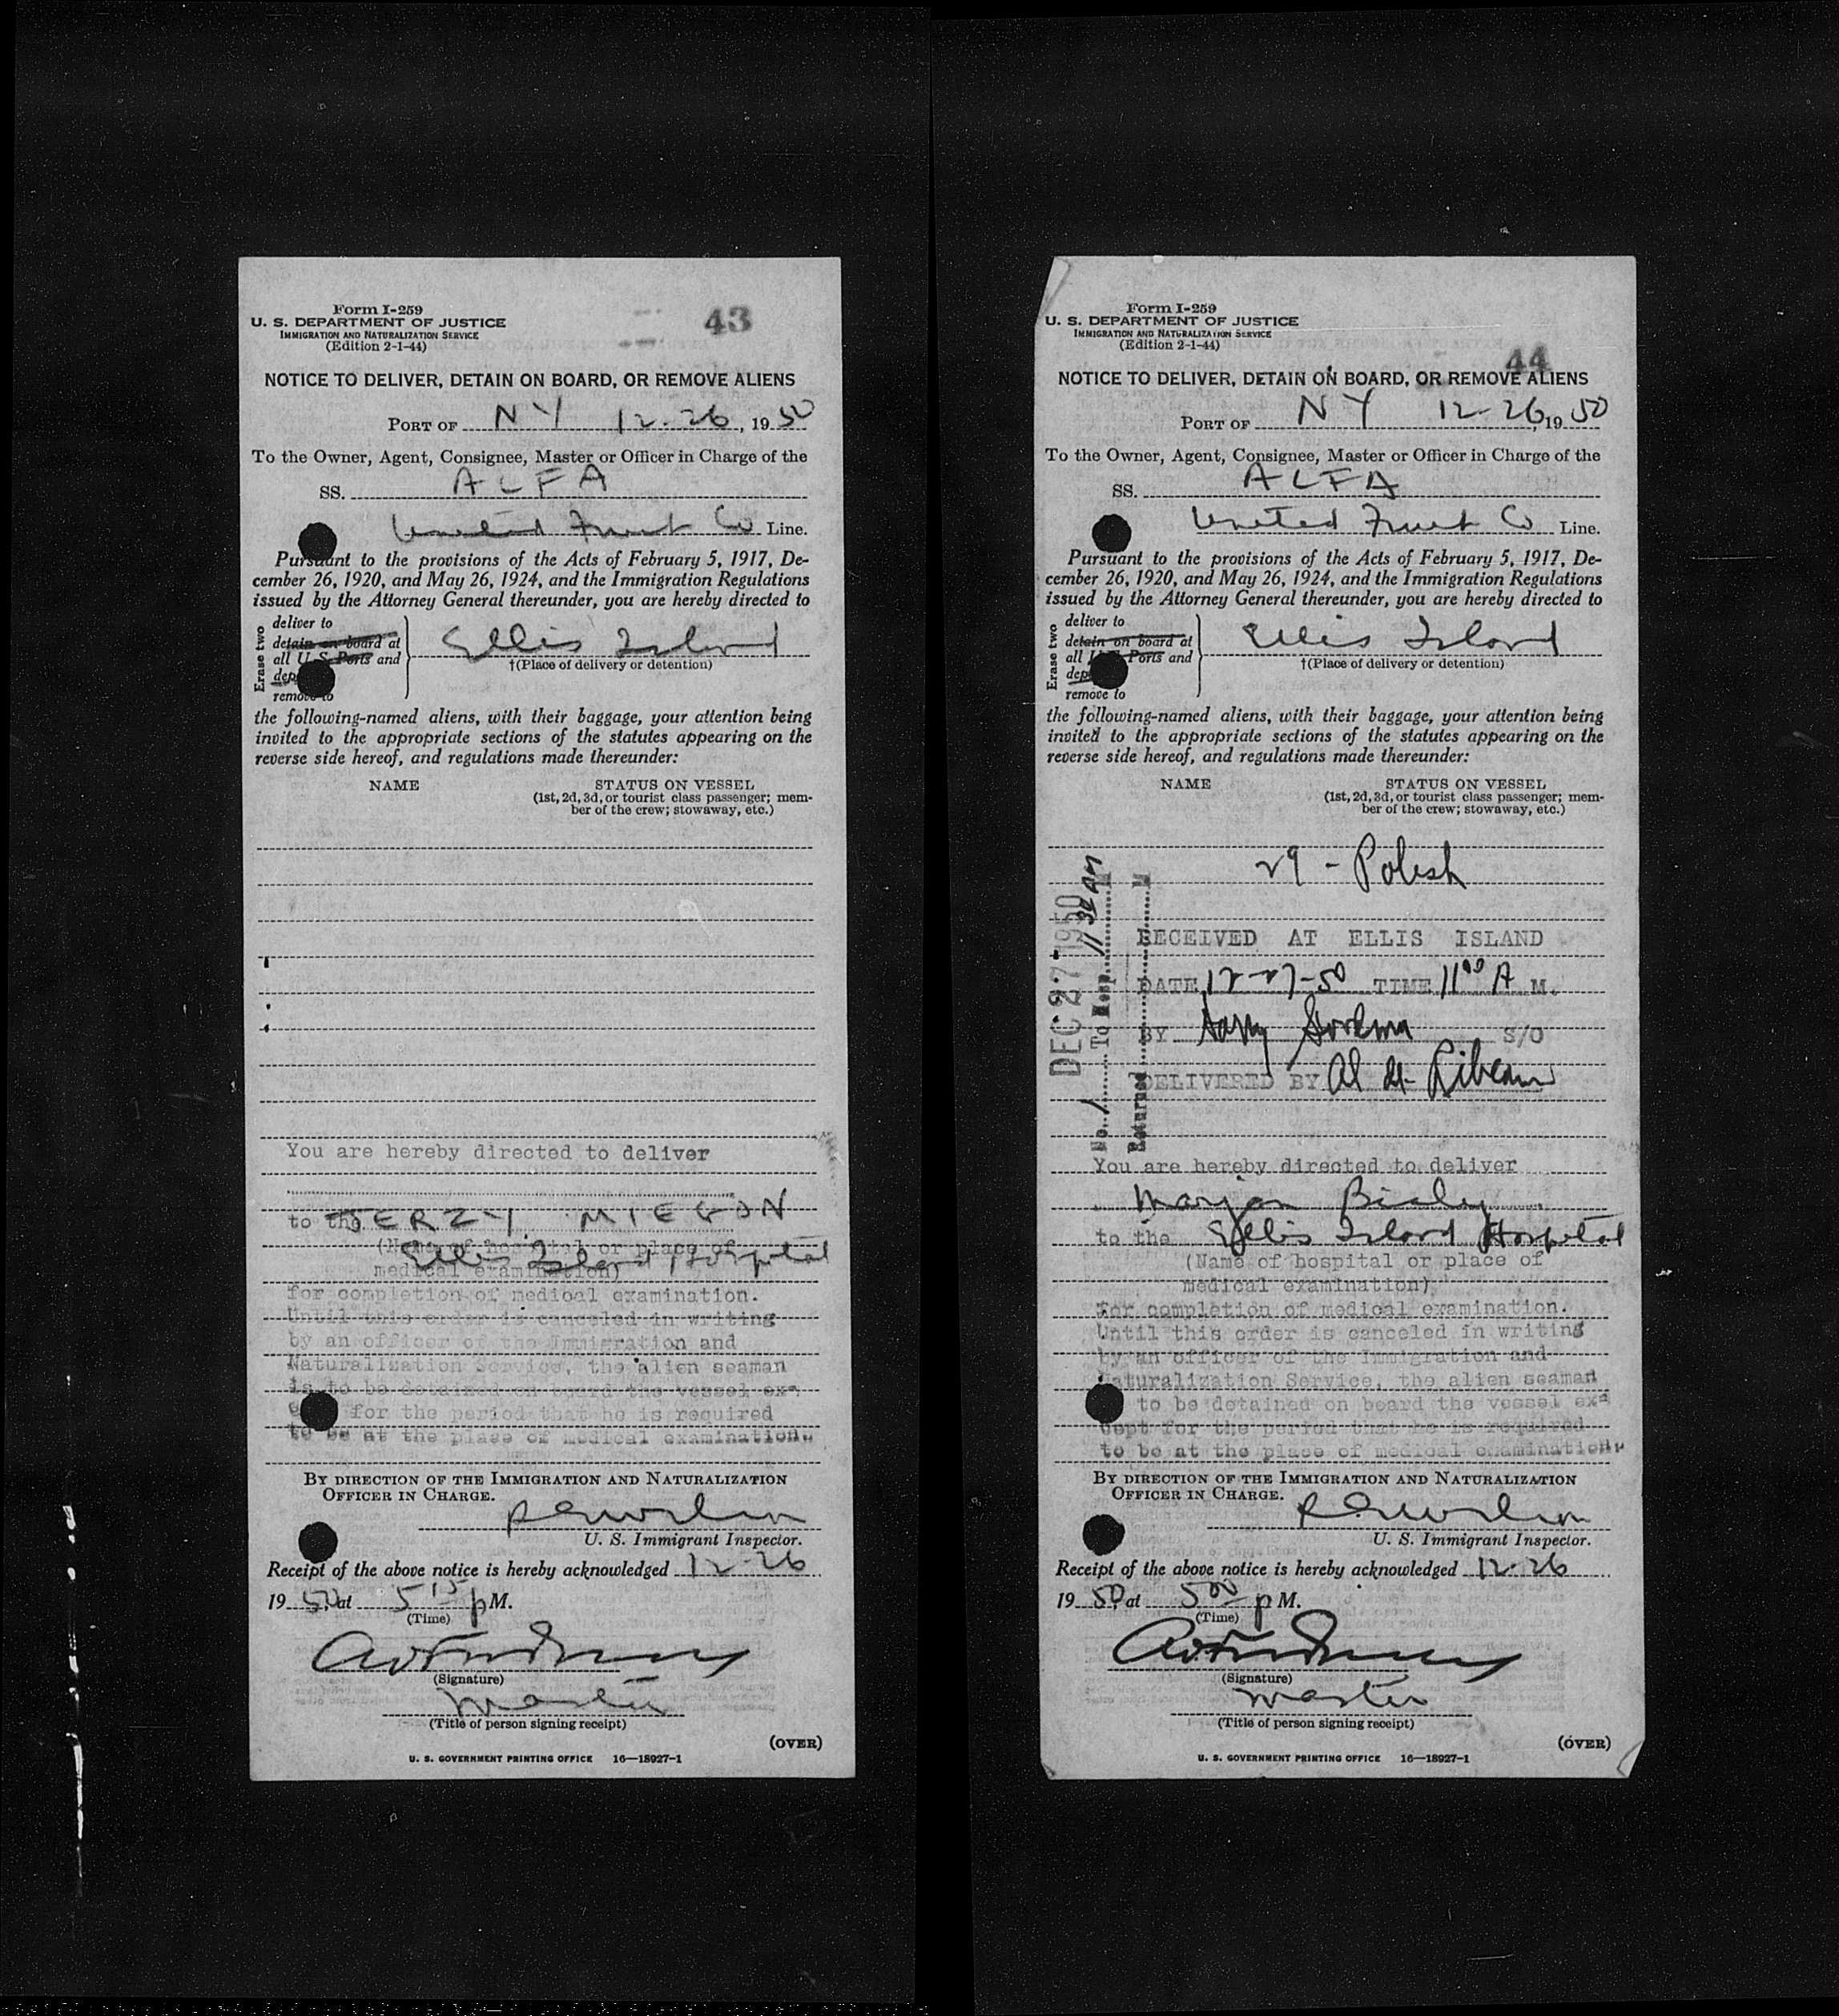 Form I-259
U. S. DEPARTMENT OF JUSTICE
IMMIGRATION AND NATURALIZATION SERVICE
(Edition 2-1-44)
43
NOTICE TO DELIVER, DETAIN ON BOARD, OR REMOVE ALIENS
PORT OF NY 12-26, 1950
To the Owner, Agent, Consignee, Master or Officer in Charge of the
SS. ALFA
United Fruit Co Line.
Pursuant to the provisions of the Acts of February 5, 1917, De-
cember 26, 1920, and May 26, 1924, and the Immigration Regulations
issued by the Attorney General thereunder, you are hereby directed to
Erase two
deliver to
detain on board at
all U. S. Ports and
dep
remove to
Ellis Island
†(Place of delivery or detention)
the following-named aliens, with their baggage, your attention being
invited to the appropriate sections of the statutes appearing on the
reverse side hereof, and regulations made thereunder:
NAME STATUS ON VESSEL
(1st, 2d, 3d, or tourist class passenger; mem-
ber of the crew; stowaway, etc.)
You are hereby directed to deliver
to the JERZY MIEGON
(Name of hospital or place of
Ellis Island Hospital
medical examination)
for completion of medical examination.
Until this order is canceled in writing
by an officer of the Immigration and
Naturalization Service, the alien seaman
is to be detained on board the vessel ex-
for the period that he is required
to be at the place of medical examination.
BY DIRECTION OF THE IMMIGRATION AND NATURALIZATION
OFFICER IN CHARGE.
U. S. Immigrant Inspector.
Receipt of the above notice is hereby acknowledged 12-26
1950, at 5 15 p M.
(Time)
(Signature)
Master
(Title of person signing receipt)
(OVER)
U. S. GOVERNMENT PRINTING OFFICE 16—18927-1
Form I-259
U. S. DEPARTMENT OF JUSTICE
IMMIGRATION AND NATURALIZATION SERVICE
(Edition 2-1-44)
44
NOTICE TO DELIVER, DETAIN ON BOARD, OR REMOVE ALIENS
PORT OF NY 12-26, 1950
To the Owner, Agent, Consignee, Master or Officer in Charge of the
SS. ALFA
United Fruit Co Line.
Pursuant to the provisions of the Acts of February 5, 1917, De-
cember 26, 1920, and May 26, 1924, and the Immigration Regulations
issued by the Attorney General thereunder, you are hereby directed to
Erase two
deliver to
detain on board at
all Ports and
dep
remove to
Ellis Island
†(Place of delivery or detention)
the following-named aliens, with their baggage, your attention being
invited to the appropriate sections of the statutes appearing on the
reverse side hereof, and regulations made thereunder:
NAME STATUS ON VESSEL
(1st, 2d, 3d, or tourist class passenger; mem-
ber of the crew; stowaway, etc.)
29 - Polish
DEC 27 1950
No. 1 To Hosp. 11 30 AM
Returned M
RECEIVED AT ELLIS ISLAND
DATE 12-27-50 TIME 11 00 A M.
BY Harry S/O
DELIVERED BY Al
You are hereby directed to deliver
Marjan Bialy
to the Ellis Island Hospital
(Name of hospital or place of
medical examination)
for completion of medical examination.
Until this order is canceled in writing
by an officer of the Immigration and
Naturalization Service, the alien seaman
to be detained on board the vessel ex-
cept for the period that he is required
to be at the place of medical examination.
BY DIRECTION OF THE IMMIGRATION AND NATURALIZATION
OFFICER IN CHARGE.
U. S. Immigrant Inspector.
Receipt of the above notice is hereby acknowledged 12-26
1950, at 5 00 p M.
(Time)
(Signature)
Master
(Title of person signing receipt)
(OVER)
U. S. GOVERNMENT PRINTING OFFICE 16—18927-1